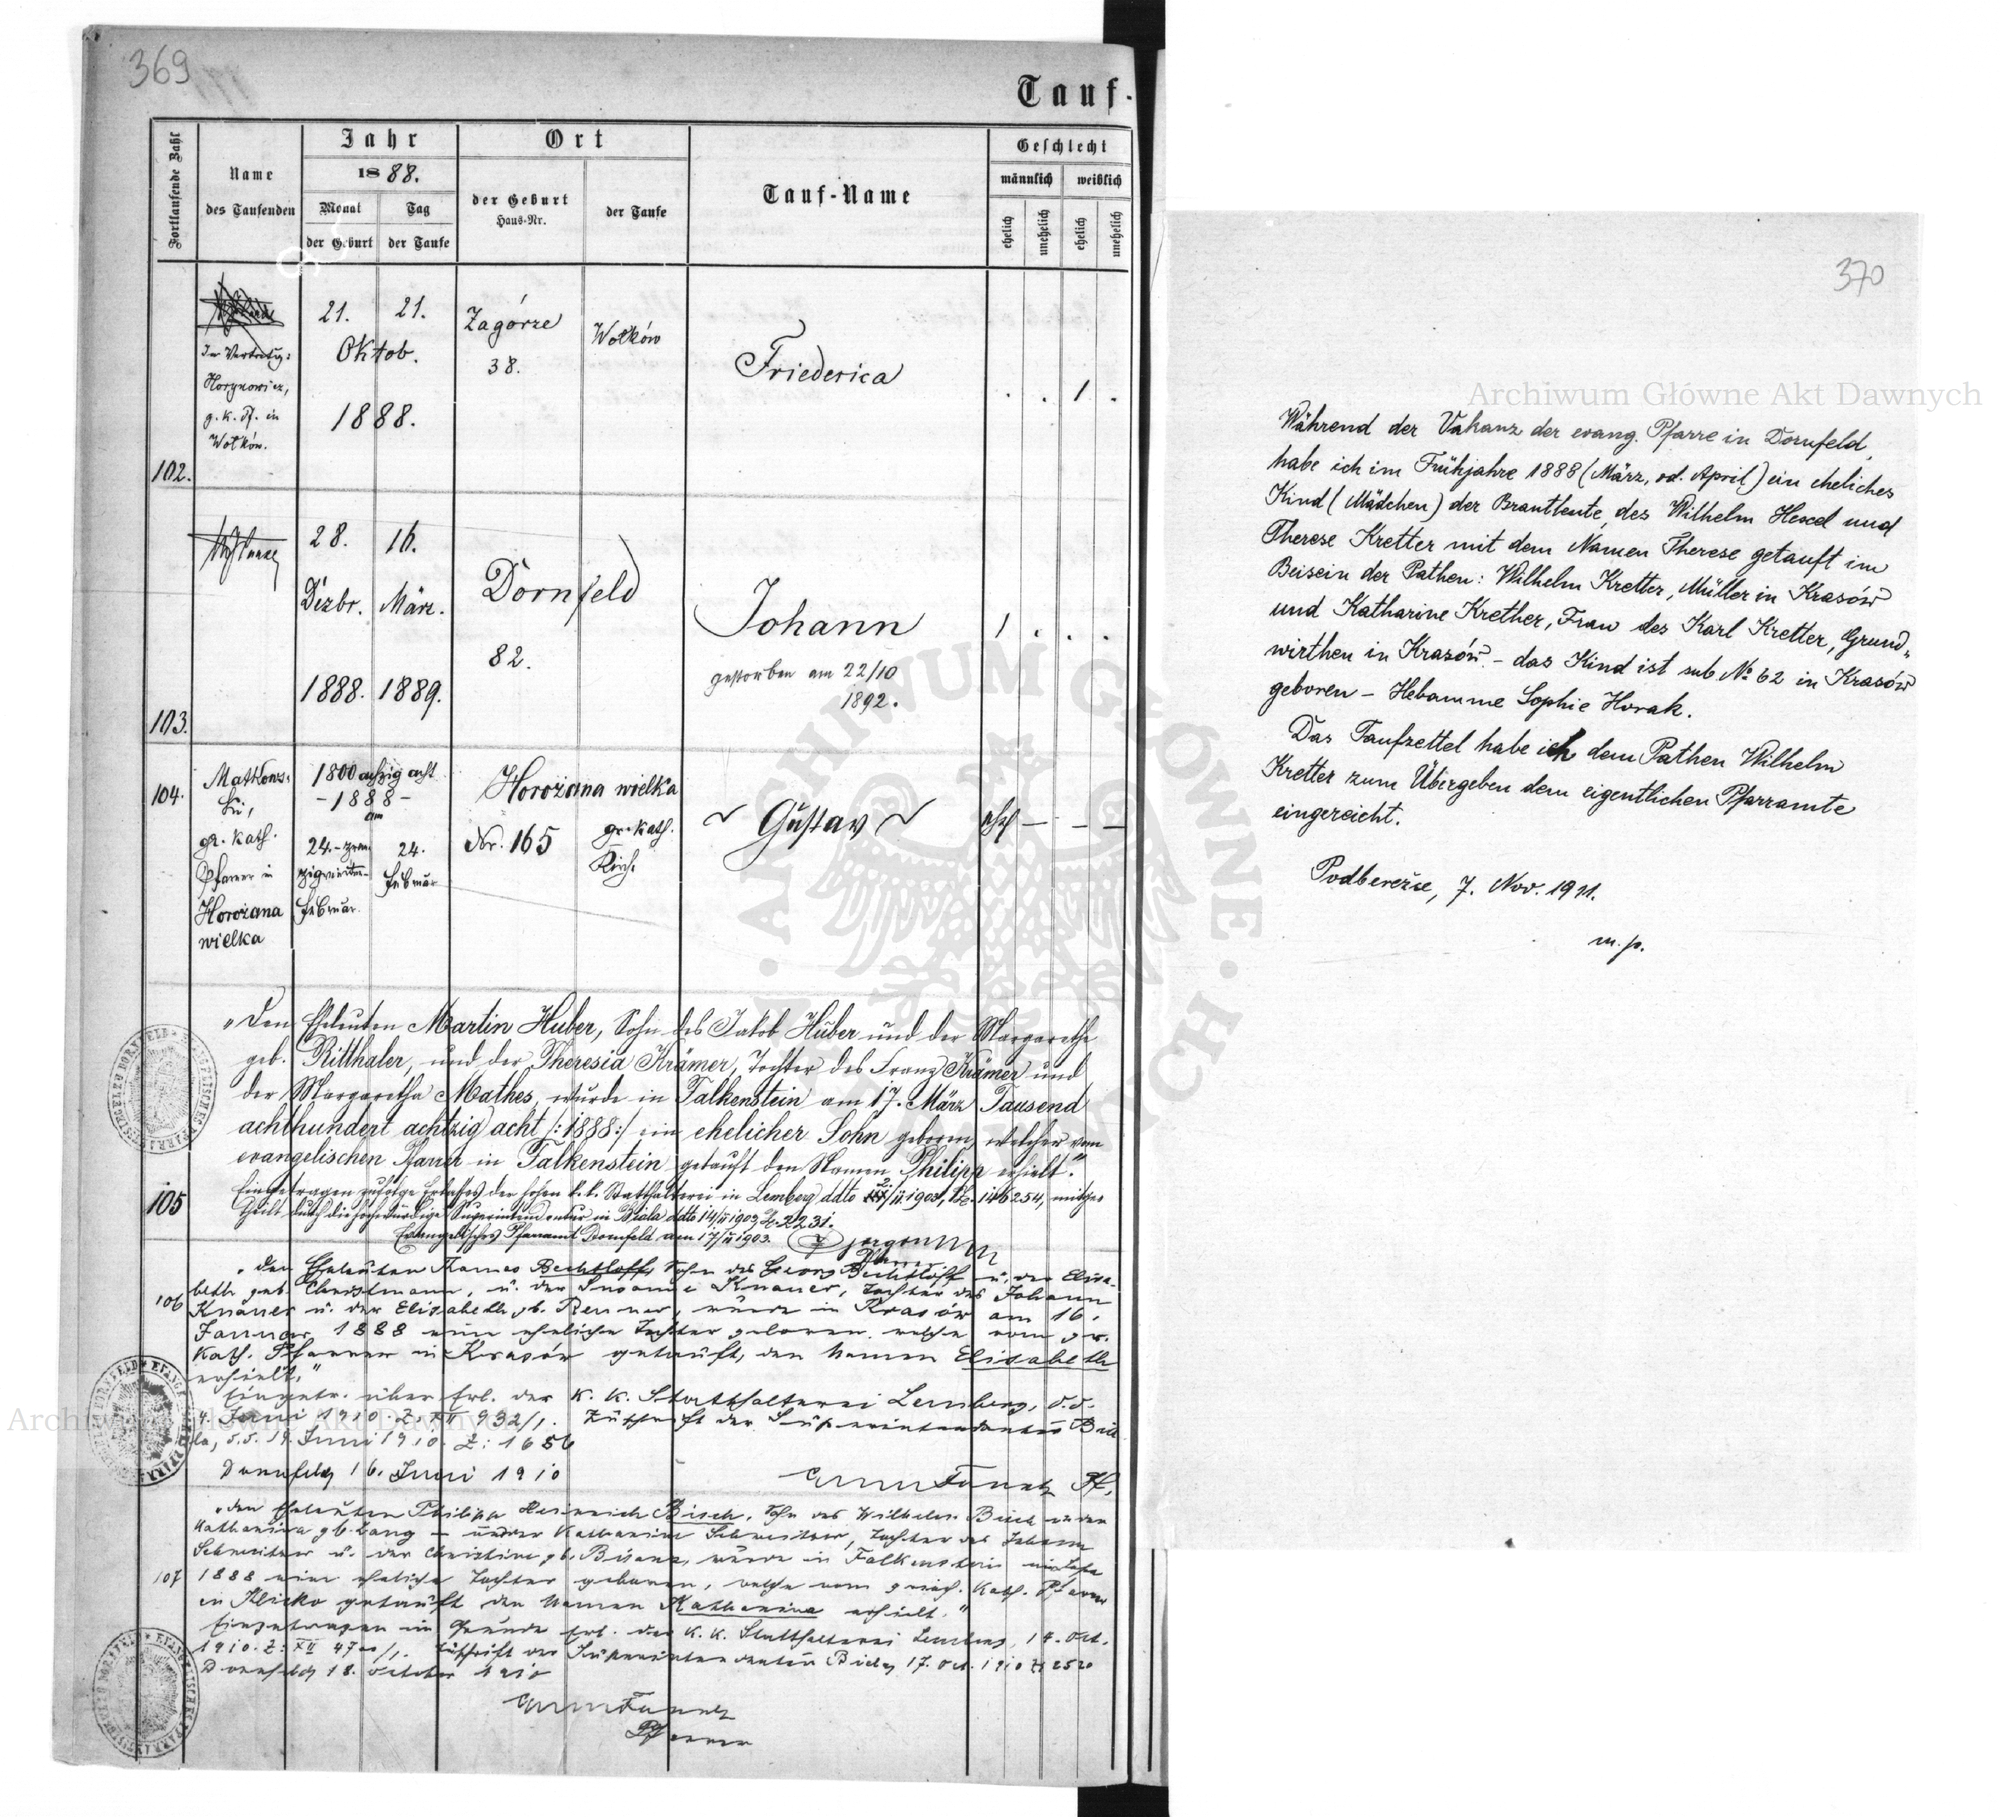 369
Tauf-
Fortlaufende Zahl
Name
des Taufenden
Jahr
1888.
Monat
der Geburt
Tag
der Taufe
Ort
der Geburt
Haus-Nr.
der Taufe
Tauf-Name
Geschlecht
männlich
weiblich
ehelich
unehelich
ehelich
unehelich
102.
In Vertretg:
Horynowicz,
g. k. Pf. in
Wołków.
21. 21.
Oktob.
1888.
Zagórze
38.
Wołków
Friederica
. . 1 .
103.
28. 16.
Dezbr. März.
1888. 1889.
Dornfeld
82.
Johann
gestorben am 22/10
1892.
1 . . .
104.
Matkows-
ki,
gr. kath.
Pfarrer in
Horożana
wielka
1800 achzig acht
- 1888 -
am
24.
24.
Februar
Februar
Horożana wielka
Nr. 165
gr. kath.
Kirche
Gustav
ehel — — —
105
"Den Eheleuten Martin Huber, Sohn des Jakob Huber und der Margarethe
geb. Ritthaler, und der Theresia Krämer, Tochter des Franz Krämer und
der Margaretha Mathes, wurde in Falkenstein am 17. März Tausend
achthundert achtzig acht /:1888:/ ein ehelicher Sohn geboren, welcher vom
evangelischen Pfarrer in Falkenstein getauft den Namen Philipp erhielt."
Eingetragen zufolge Erlasses der hohen k. k. Statthalterei in Lemberg ddto 1903, 146254, mitge-
theilt durch die hochwürdige Superintendentur in Biala ddto 14/ 1903, Z. 2231.
Evangelisches Pfarramt Dornfeld am 17/ 1903.
106
"Den Eheleuten Bechtloff, Sohn des Georg Bechtloff u. der Elisa-
beth geb. Christmann, u. der Susanne Knauer, Tochter des Johann
Knauer u. der Elisabeth gb. Renner, wurde in Krasów am 16.
Januar 1888 eine eheliche Tochter geboren, welche vom gr.
kath. Pfarrer in Krasów getauft, den Namen Elisabeth
erhielt."
Eingetr. über Erl. der k. k. Statthalterei Lemberg, d. d.
4. Juni 1910 Z: XII 932/1. Zuschrift der Superintendentur Bia
la, d. d. 14. Juni 1910. Z: 1656
Dornfeld 16. Juni 1910
Pf.
107
"Den Eheleuten Philipp Heinrich Bisch, Sohn des Wilhelm Bisch u. der
Katharina gb. Lang – und der Katharine Schweitzer, Tochter des Johann
Schweitzer u. der Christine gb. Bisanz, wurde in Falkenstein
1888 eine eheliche Tochter geboren, welche vom griech. kath. Pfarrer
in getauft den Namen Katharina erhielt."
Eingetragen im Grunde Erl. der k. k. Statthalterei Lemberg, 14. Oct.
1910. Z: XII 4700/1. Zuschrift der Superintendentur Biala 17. Oct. 1910 Z: 2520
Dornfeld 18. October 1910
Pfarrer
370
Während der Vakanz der evang. Pfarre in Dornfeld,
habe ich im Frühjahre 1888 (März, od. April) ein eheliches
Kind (Mädchen) der Brautleute, des Wilhelm Hexel und
Therese Kretter mit dem Namen Therese getauft im
Beisein der Pathen: Wilhelm Kretter, Müller in Krasów
und Katharine Krether, Frau des Karl Kretter, Grund-
wirthen in Krasów – das Kind ist sub No 62 in Krasów
geboren – Hebamme Sophie Horak.
Das Taufzettel habe ich dem Pathen Wilhelm
Kretter zum Übergeben dem eigentlichen Pfarramte
eingereicht.
Podbereźce, 7. Nov. 1911.
m. p.
Archiwum Główne Akt Dawnych
ARCHIWUM GŁÓWNE AKT DAWNYCH